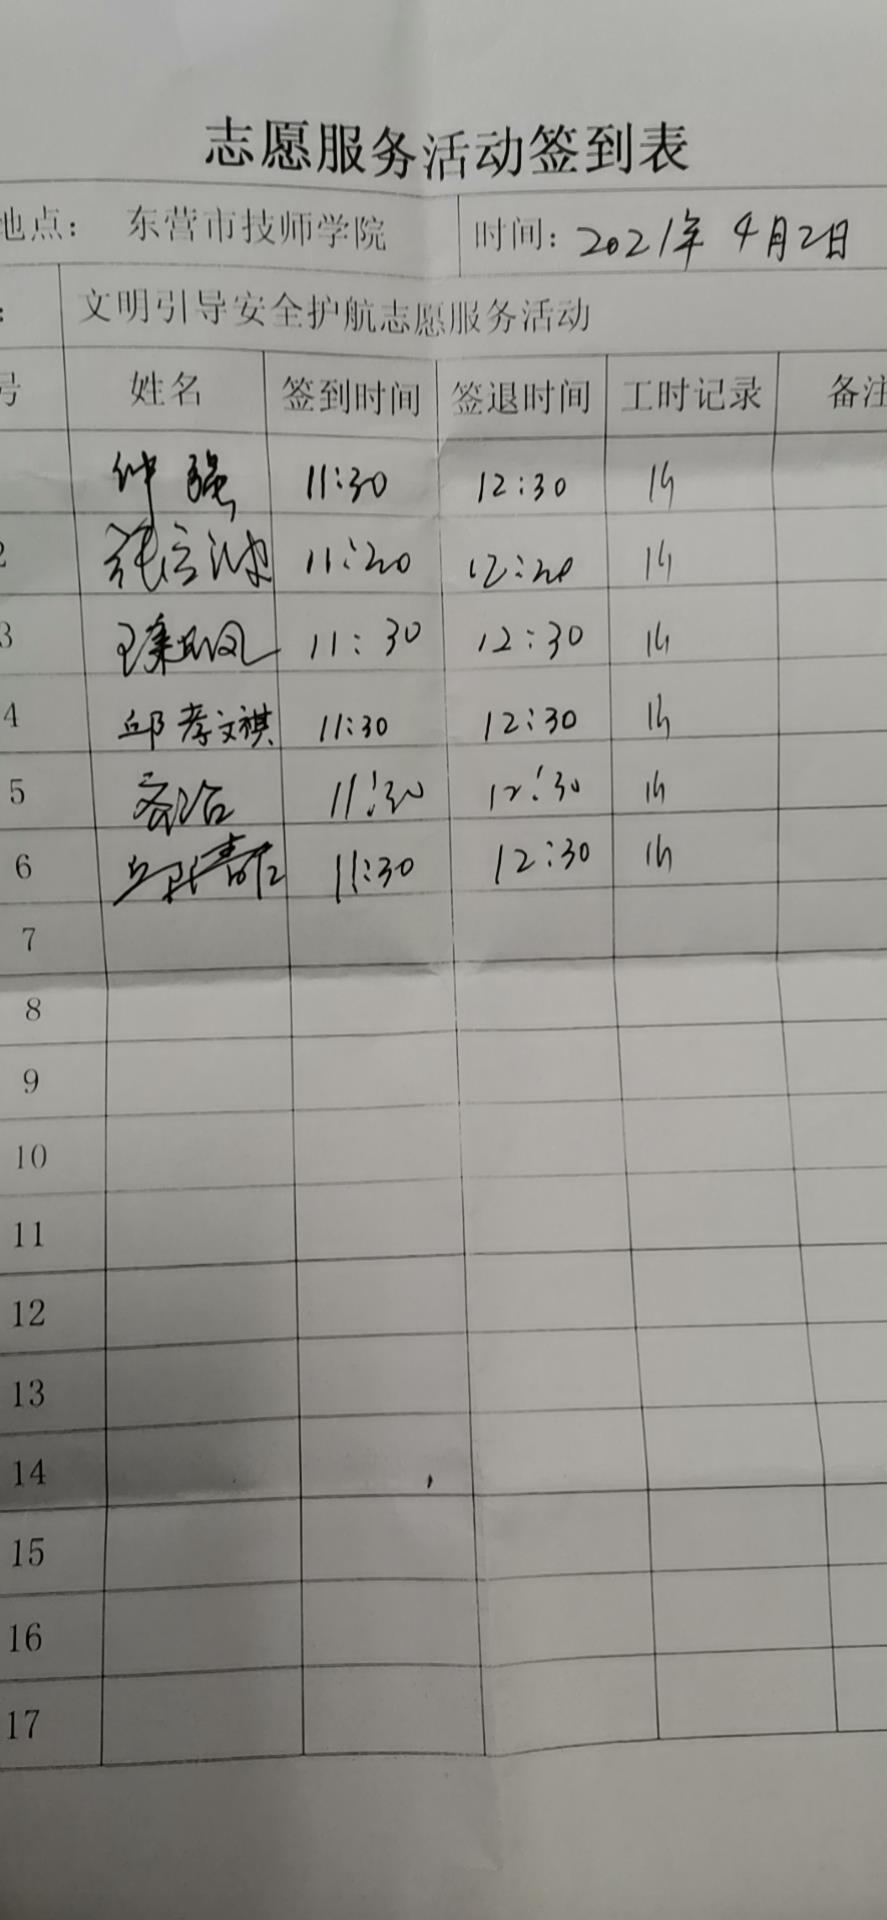 志愿服务活动签到表
地点： 东营市技师学院 时间：2021年4月2日
： 文明引导安全护航志愿服务活动
号 姓名 签到时间 签退时间 工时记录 备注
仲强 11:30 12:30 1h
2 11:20 12:20 1h
3 11:30 12:30 1h
4 邱孝文祺 11:30 12:30 1h
5 11:30 12:30 1h
6 11:30 12:30 1h
7
8
9
10
11
12
13
14
15
16
17